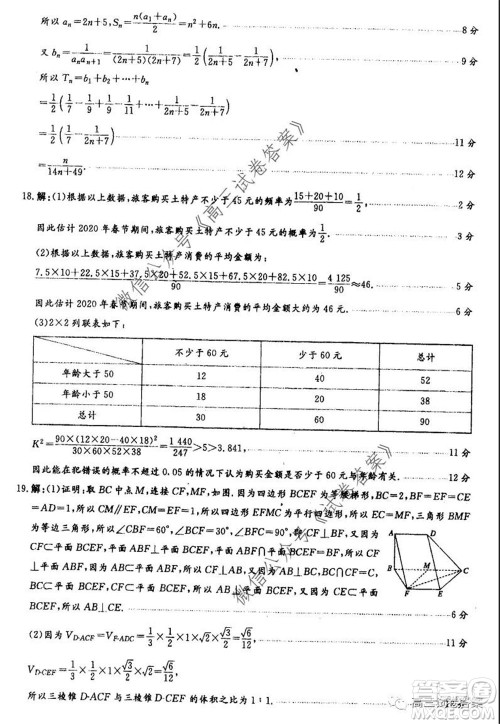 所以 aₙ=2n+5, Sₙ=n(a₁+aₙ)/2=n²+6n. 8分
又 bₙ=1/(aₙaₙ₊₁)=1/((2n+5)(2n+7))=1/2(1/(2n+5)-1/(2n+7)), 9分
所以 Tₙ=b₁+b₂+…+bₙ
=1/2(1/7-1/9+1/9-1/11+…+1/(2n+5)-1/(2n+7))
=1/2(1/7-1/(2n+7)) 11分
=n/(14n+49). 12分
18.解:(1)根据以上数据,旅客购买土特产不少于45元的频率为(15+20+10)/90=1/2, 2分
因此估计2020年春节期间,旅客购买土特产不少于45元的概率为1/2. 3分
(2)根据以上数据,旅客购买土特产消费的平均金额为:
(7.5×10+22.5×15+37.5×20+52.5×15+67.5×20+82.5×10)/90=4 125/90≈46. 5分
因此估计2020年春节期间,旅客购买土特产消费的平均金额大约为46元. 6分
(3)2×2列联表如下:
不少于60元 少于60元 总计
年龄大于50 12 40 52
年龄小于50 18 20 38
总计 30 60 90
K²=90×(12×20-40×18)²/(30×60×52×38)=1 440/247>5>3.841, 11分
因此能在犯错误的概率不超过0.05的情况下认为购买金额是否少于60元与年龄有关. 12分
19.解:(1)证明:取BC中点M,连接CF,MF,如图.因为四边形BCEF为等腰梯形,
A D
B C
F E
所以CM∥EF,CM=EF,所以四边形EFMC为平行四边形,所以MF=EC,三角形BMF
为等边三角形,所以∠CBF=60°,∠BFC=90°,所以CF⊥BF.因为平面ABF⊥平面BCEF,
CF⊂平面BCEF,平面ABF∩平面BCEF=BF,所以CF⊥平面ABF,因为AB⊂平面
ABF,所以CF⊥AB.又四边形ABCD为正方形,所以AB⊥BC,因为BC∩CF=C,BC⊂平面BCEF,
CF⊂平面BCEF,所以AB⊥平面BCEF,又因为CE⊂平面
BCEF,所以AB⊥CE. 6分
(2)因为V D-ACF=V F-ADC=1/3×1/2×1×√3/2=√3/12, 11分
V D-CEF=1/3×1/2×1×√3/2=√3/12,
所以三棱锥D-ACF与三棱锥D-CEF的体积之比为1:1.
微信公众号《高三试卷答案》
微信公众号《高三试卷答案》